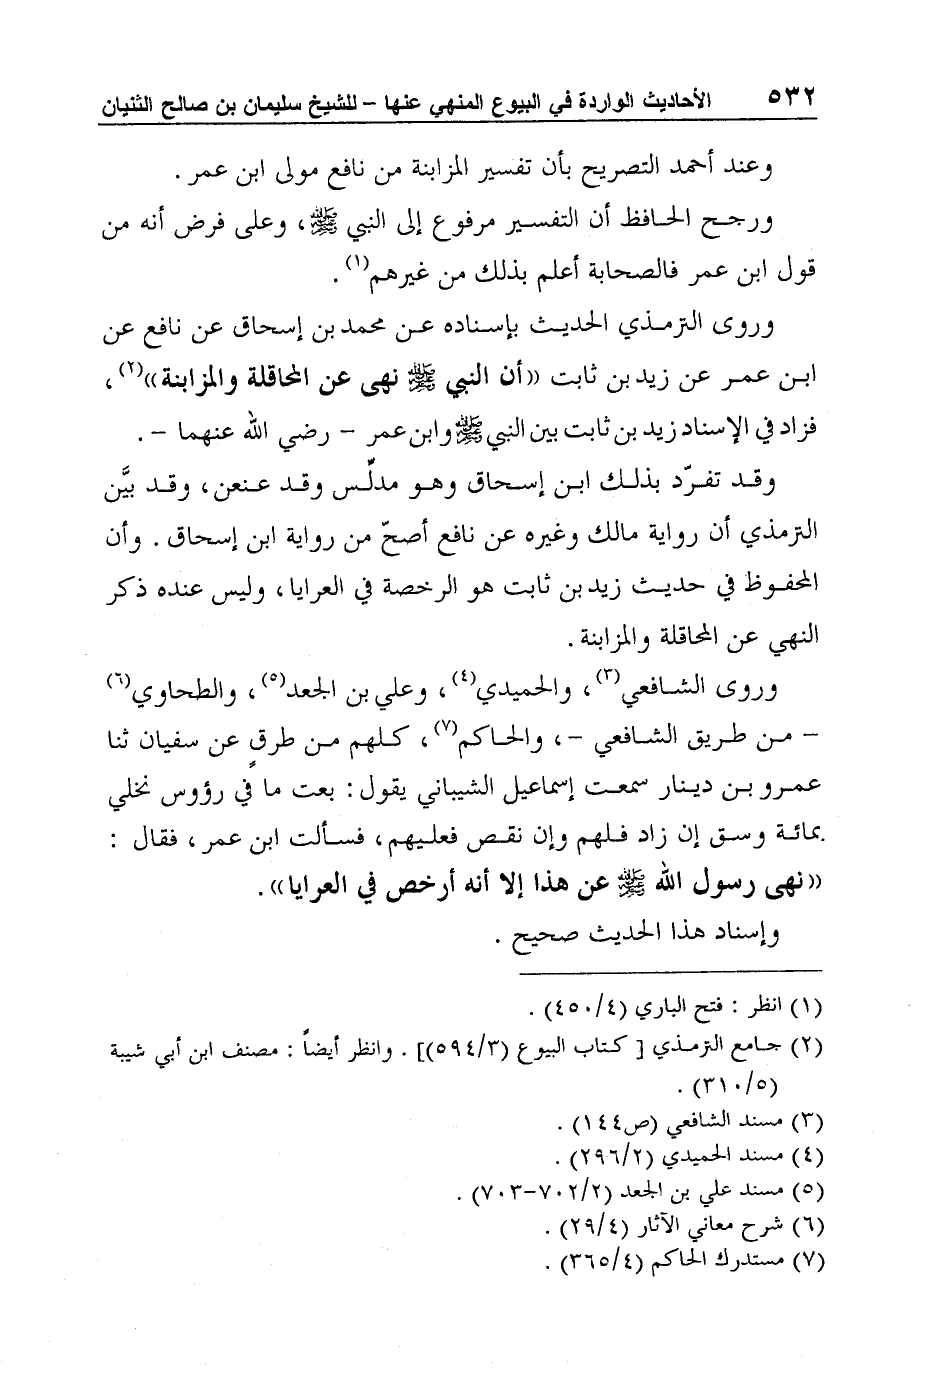 ٥٣٢ الأحاديث الواردة في البيوع المنهي عنها – للشيخ سليمان بن صالح الثنيان
وعند أحمد التصريح بأن تفسير المزابنة من نافع مولى ابن عمر .
ورجح الحافظ أن التفسير مرفوع إلى النبي ﷺ ، وعلى فرض أنه من
قول ابن عمر فالصحابة أعلم بذلك من غيرهم(١) .
وروى الترمذي الحديث بإسناده عن محمد بن إسحاق عن نافع عن
ابن عمر عن زيد بن ثابت ((أن النبي ﷺ نهى عن المحاقلة والمزابنة))(٢) ،
فزاد في الإسناد زيد بن ثابت بين النبي ﷺ وابن عمر – رضي الله عنهما – .
وقد تفرّد بذلك ابن إسحاق وهو مدلّس وقد عنعن ، وقد بيَّن
الترمذي أن رواية مالك وغيره عن نافع أصحّ من رواية ابن إسحاق . وأن
المحفوظ في حديث زيد بن ثابت هو الرخصة في العرايا ، وليس عنده ذكر
النهي عن المحاقلة والمزابنة .
وروى الشافعي(٣) ، والحميدي(٤) ، وعلي بن الجعد(٥) ، والطحاوي(٦)
– من طريق الشافعي – ، والحاكم(٧) ، كلهم من طرقٍ عن سفيان ثنا
عمرو بن دينار سمعت إسماعيل الشيباني يقول : بعت ما في رؤوس نخلي
بمائة وسق إن زاد فلهم وإن نقص فعليهم ، فسألت ابن عمر ، فقال :
((نهى رسول الله ﷺ عن هذا إلا أنه أرخص في العرايا)) .
وإسناد هذا الحديث صحيح .
(١) انظر : فتح الباري (٤/٤٥٠) .
(٢) جامع الترمذي [ كتاب البيوع (٣/٥٩٤)] . وانظر أيضاً : مصنف ابن أبي شيبة
(٥/٣١٠) .
(٣) مسند الشافعي (ص١٤٤) .
(٤) مسند الحميدي (٢/٢٩٦) .
(٥) مسند علي بن الجعد (٢/٧٠٢-٧٠٣) .
(٦) شرح معاني الآثار (٤/٢٩) .
(٧) مستدرك الحاكم (٤/٣٦٥) .